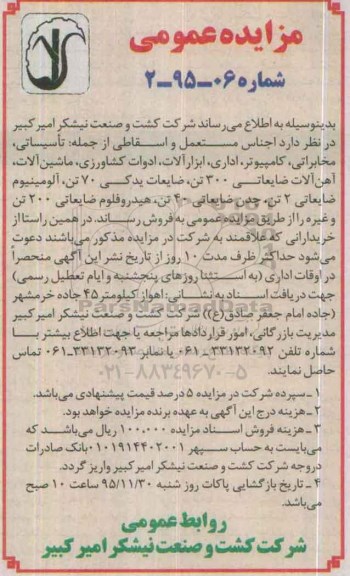 مزایده عمومی
شماره ۰۶-۹۵-۲
بدینوسیله به اطلاع می‌رساند شرکت کشت و صنعت نیشکر امیر کبیر
در نظر دارد اجناس مستعمل و اسقاطی از جمله: تأسیساتی،
مخابراتی، کامپیوتر، اداری، ابزارآلات، ادوات کشاورزی، ماشین‌آلات،
آهن‌آلات ضایعاتی ۳۰۰ تن، ضایعات یدکی ۷۰ تن، آلومینیوم
ضایعاتی ۲ تن، چدن ضایعاتی ۴۰ تن، هیدروفلوم ضایعاتی ۲۰۰ تن
و غیره را از طریق مزایده عمومی به فروش رساند. در همین راستا از
خریدارانی که علاقمند به شرکت در مزایده مذکور می‌باشند دعوت
می‌شود حداکثر ظرف مدت ۱۰ روز از تاریخ نشر این آگهی منحصراً
در اوقات اداری (به استثنا روزهای پنجشنبه و ایام تعطیل رسمی)
جهت دریافت اسناد به نشانی: اهواز کیلومتر ۴۵ جاده خرمشهر
(جاده امام جعفر صادق(ع)) شرکت کشت و صنعت نیشکر امیر کبیر
مدیریت بازرگانی، امور قراردادها مراجعه یا جهت اطلاع بیشتر با
شماره تلفن ۳۳۱۳۲۰۹۲-۰۶۱ یا نمابر ۳۳۱۳۲۰۹۳-۰۶۱ تماس
حاصل نمایند.
۰۲۱-۸۸۳۴۹۶۷۰-۵
۱- سپرده شرکت در مزایده ۵ درصد قیمت پیشنهادی می‌باشد.
۲- هزینه درج این آگهی به عهده برنده مزایده خواهد بود.
۳- هزینه فروش اسناد مزایده ۱۰۰,۰۰۰ ریال می‌باشد که
می‌بایست به حساب سپهر ۰۱۰۱۹۱۴۴۰۲۰۰۱ بانک صادرات
در وجه شرکت کشت و صنعت نیشکر امیر کبیر واریز گردد.
۴- تاریخ بازگشایی پاکات روز شنبه ۹۵/۱۱/۳۰ ساعت ۱۰ صبح
می‌باشد.
روابط عمومی
شرکت کشت و صنعت نیشکر امیر کبیر